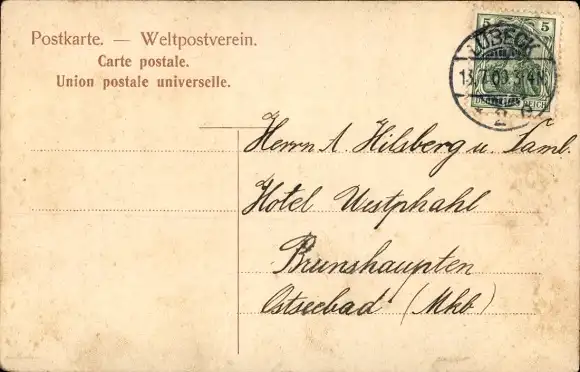 Postkarte. — Weltpostverein.
Carte postale.
Union postale universelle.
5 5
LÜBECK
13.7.09. 3-4N.
* 2 a
DEUTSCHES REICH
Herrn A Hilsberg u. Faml.
Hotel Westphahl
Brunshaupten
Ostseebad (Mkb)